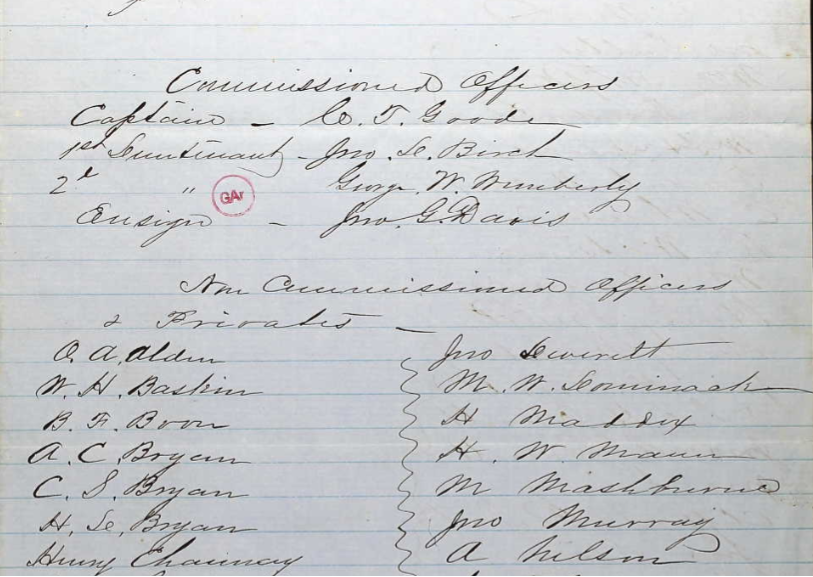 Commissioned Officers
Captain - C. T. Goode
1st Lieutenant - Jno. L. Birch
2d " George W. Wimberly
GAr
Ensign - Jno. G. Davis
Non Commissioned Officers
& Privates -
O. A. Alden
W. H. Baskin
B. F. Boon
A. C. Bryan
C. S. Bryan
H. L. Bryan
Henry Chaunay
Jno Leverett
M. W.
H Maddox
H. W. Maun
M Mashburne
Jno Murray
A Nelson